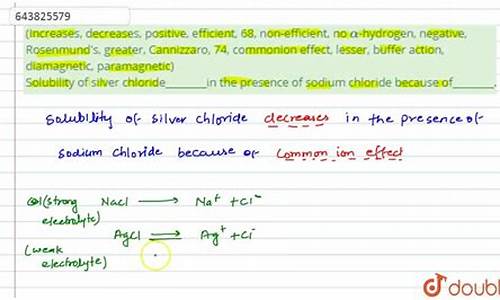 643825579
(Increases, decreases, positive, efficient, 68, non-efficient, no α-hydrogen, negative,
Rosenmund's, greater, Cannizzaro, 74, commonion effect, lesser, buffer action,
diamagnetic, paramagnetic)
Solubility of silver chloride_______in the presence of sodium chloride because of_______.
Solubility of silver chloride decreases in the presence of
Sodium chloride because of Common ion effect
(strong NaCl ⟶ Na⁺ + Cl⁻
electrolyte)
AgCl ⇌ Ag⁺ + Cl⁻
(weak
electrolyte)
doubt